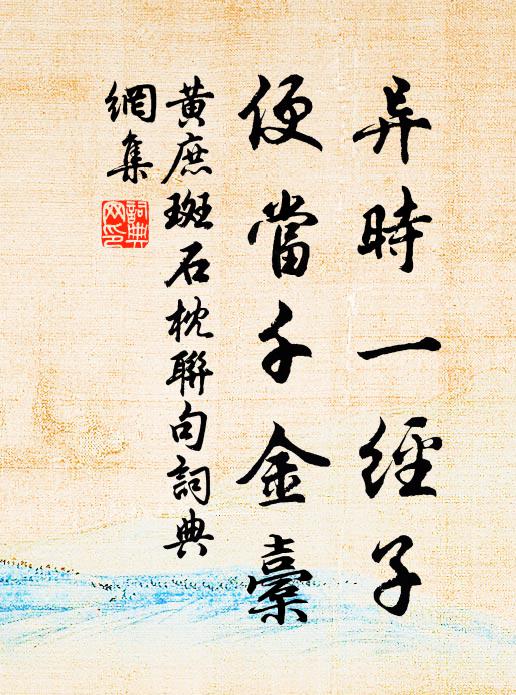 异時一經子
便當千金橐
黃庶斑石枕聯句詞典
網集
詞典
网印